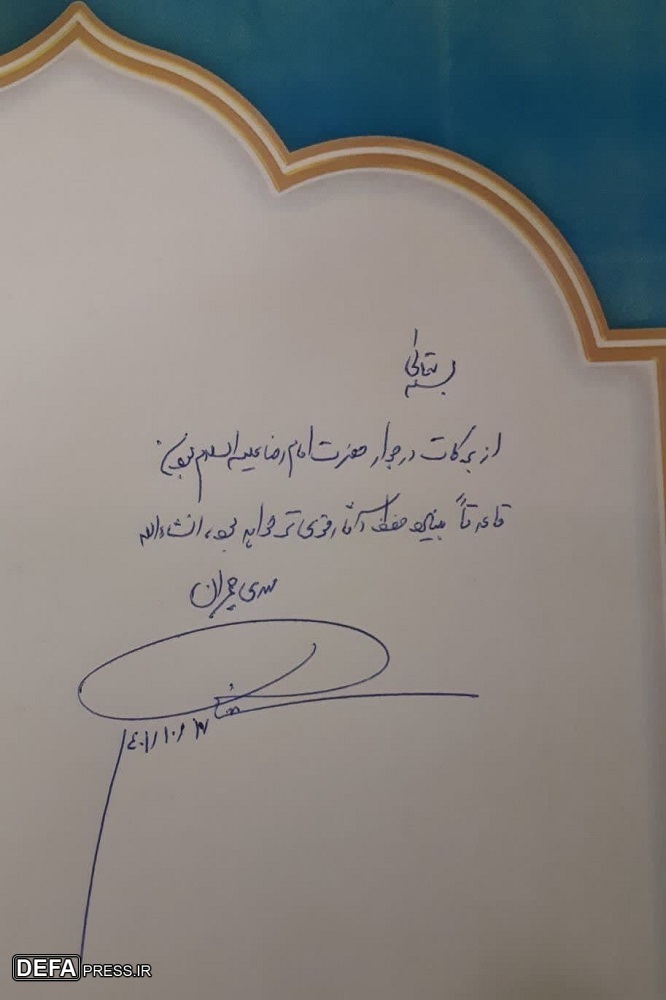 بسمه تعالی
از برکات در جوار حضرت امام رضا علیه السلام بودن
قاعدتاً حفظ آثار قوی تر خواهد بود، انشاءالله
مهدی چمران
DEFAPRESS.IR